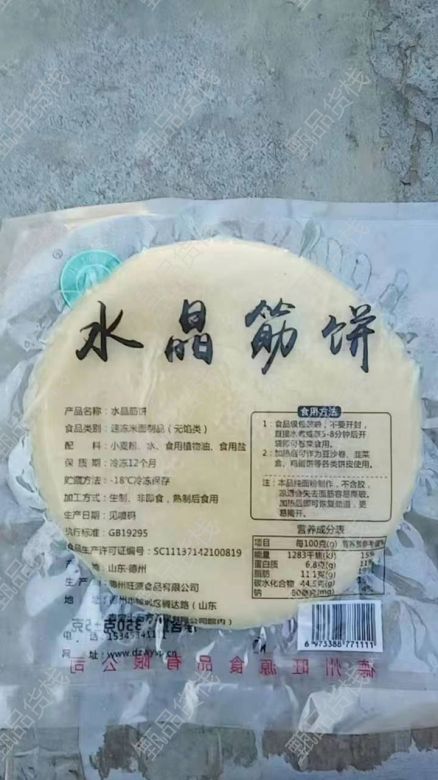 水晶筋饼
产品名称：水晶筋饼
食品类别：速冻米面制品（无馅类）
配 料：小麦粉、水、食用植物油、食用盐
保 质 期：冷冻12个月
贮藏方法：-18℃冷冻保存
加工方式：生制、非即食，熟制后食用
生产日期：见喷码
执行标准：GB19295
食品生产许可证编号：SC11137142100819
产 地：山东·德州
德州旺源食品有限公司
食用方法
不要开封，
5-8分钟后开
2：加热后可作为豆沙卷、韭菜
盒、鸡蛋饼等各类饼皮使用。
注：本品纯面粉制作，不含胶，
营养成分表
项目 每100克(g)
能量 1283千焦(kJ) 15%
蛋白质 6.8克(g)
脂肪 11.1克(g)
碳水化合物
钠
净含量：350克
6 973388 771111
德州旺源食品有限公司
甄品货栈